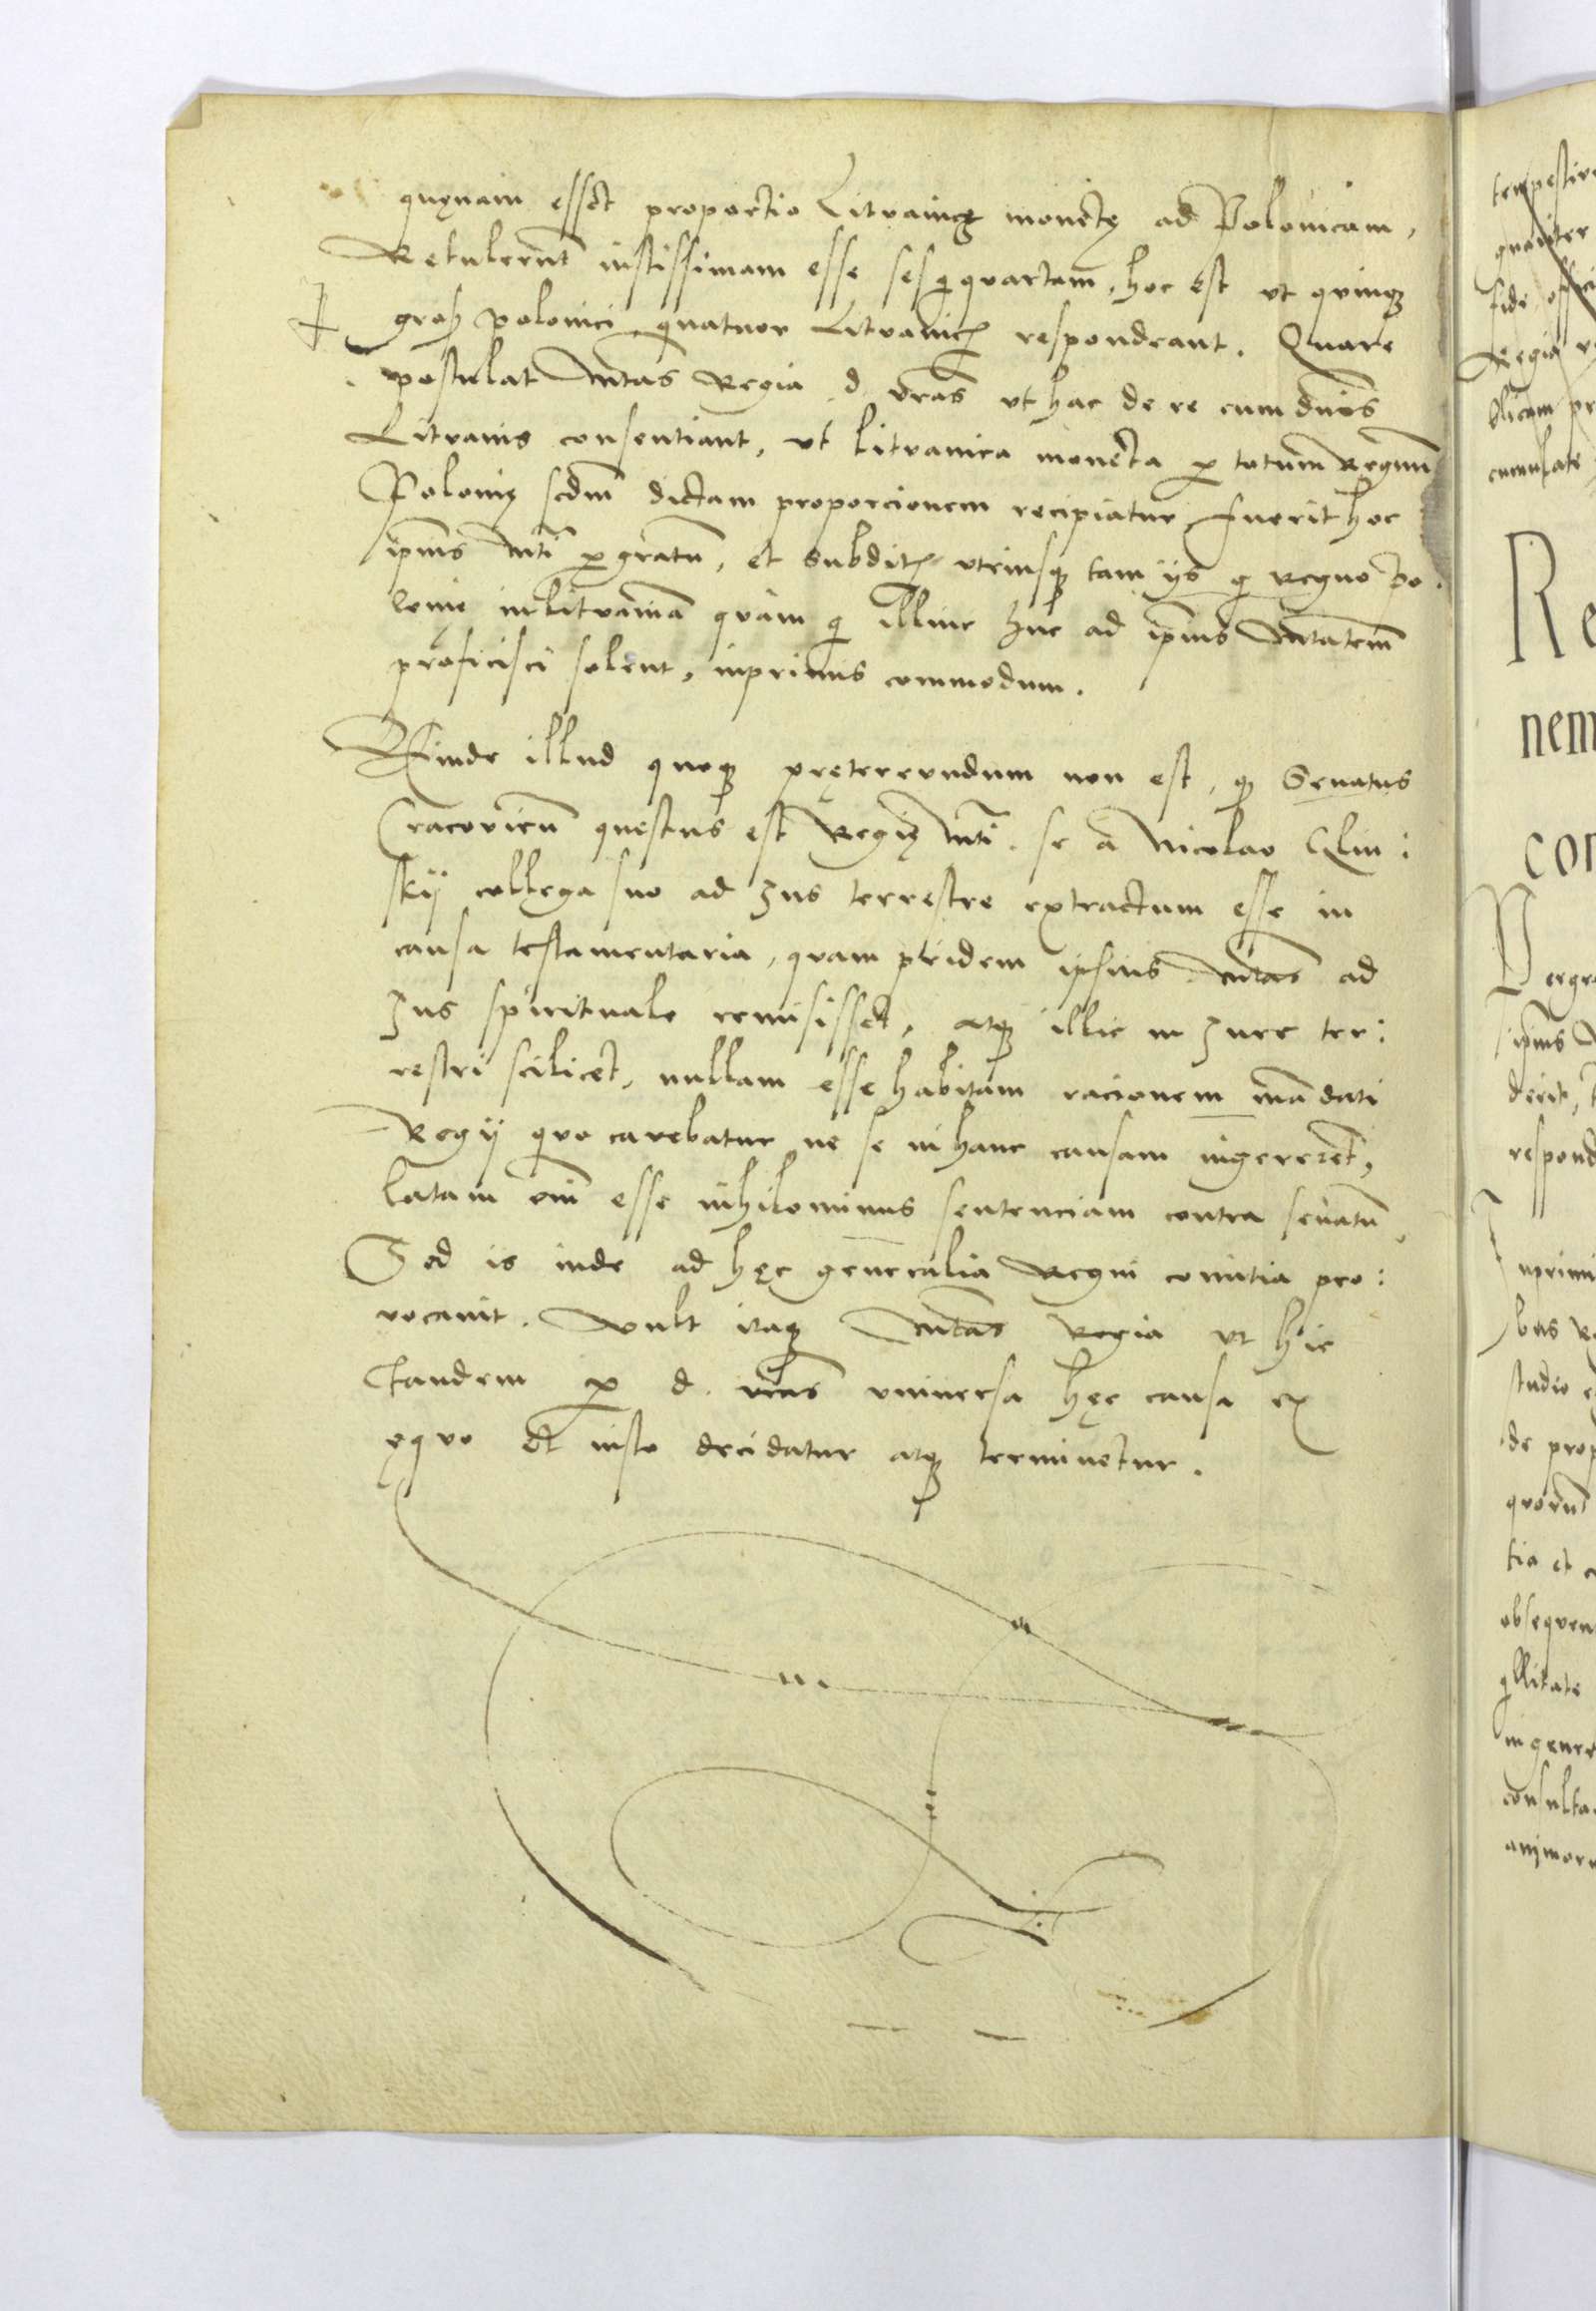 quęnam esset proportio Litvanicę monetę ad Polonicam,
Retulerunt iustissimam esse sesquiquartam, hoc est ut quinq
gross polonici quatuor Litvanicis respondeant. Quare
postulat Mtas Regia d vras ut hac de re cum dnis
Litvanis consentiant, ut litvanica moneta p totum Regnum
Polonię scdm dictam proporcionem recipiatur, fuerit hoc
ipius Mti pgratu, et subditis utriusq tam ijs q Regno Po
lonie in Litvania quam q illinc huc ad ipius Mtatem
proficisci solent, inprimis commodum.
Deinde illud quoq pręterevndum non est, q Senatus
Cracovien questus est Regię Mti. se a Nicolao Glin:
skij collega suo ad Jus terrestre extractum esse in
causa testamentaria, quam pridem ipsius Mtas ad
Jus spirituale remisisset, atq illic in Jure ter:
restri scilicet, nullam esse habitam racionem madati
Regij quo cavebatur ne se in hanc causam ingererent,
latam eni esse nihilominus sentenciam contra senatu,
Sed is inde ad hęc generalia Regni comitia pro:
vocavit. Vult itaq Mtas Regia ut hic
tandem p d. vras universa hęc causa ex
ęquo et iusto decidatur atq terminetur.
tempestive
gnaviter
fide offici
Regia
blicam pr
cumulate
Re
nem
con
Pergra
ipius
derit,
respond
Inprimi
bus
studio
de prop
quorum
tia et
obsequen
in genere
consulta
animoru